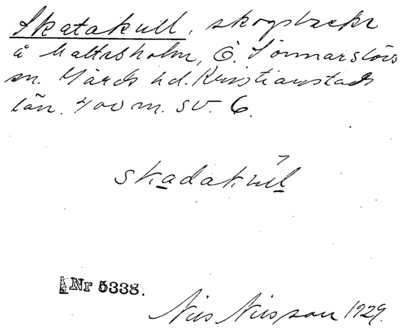 Skatakull, skogsbacke
å Mattsholm, Ö. Sönnarslövs
sn. Gärds hd. Kristianstads
län. 400 m. SV. 6.
skadakúll
Nr 5338.
Nils Nilsson 1929.